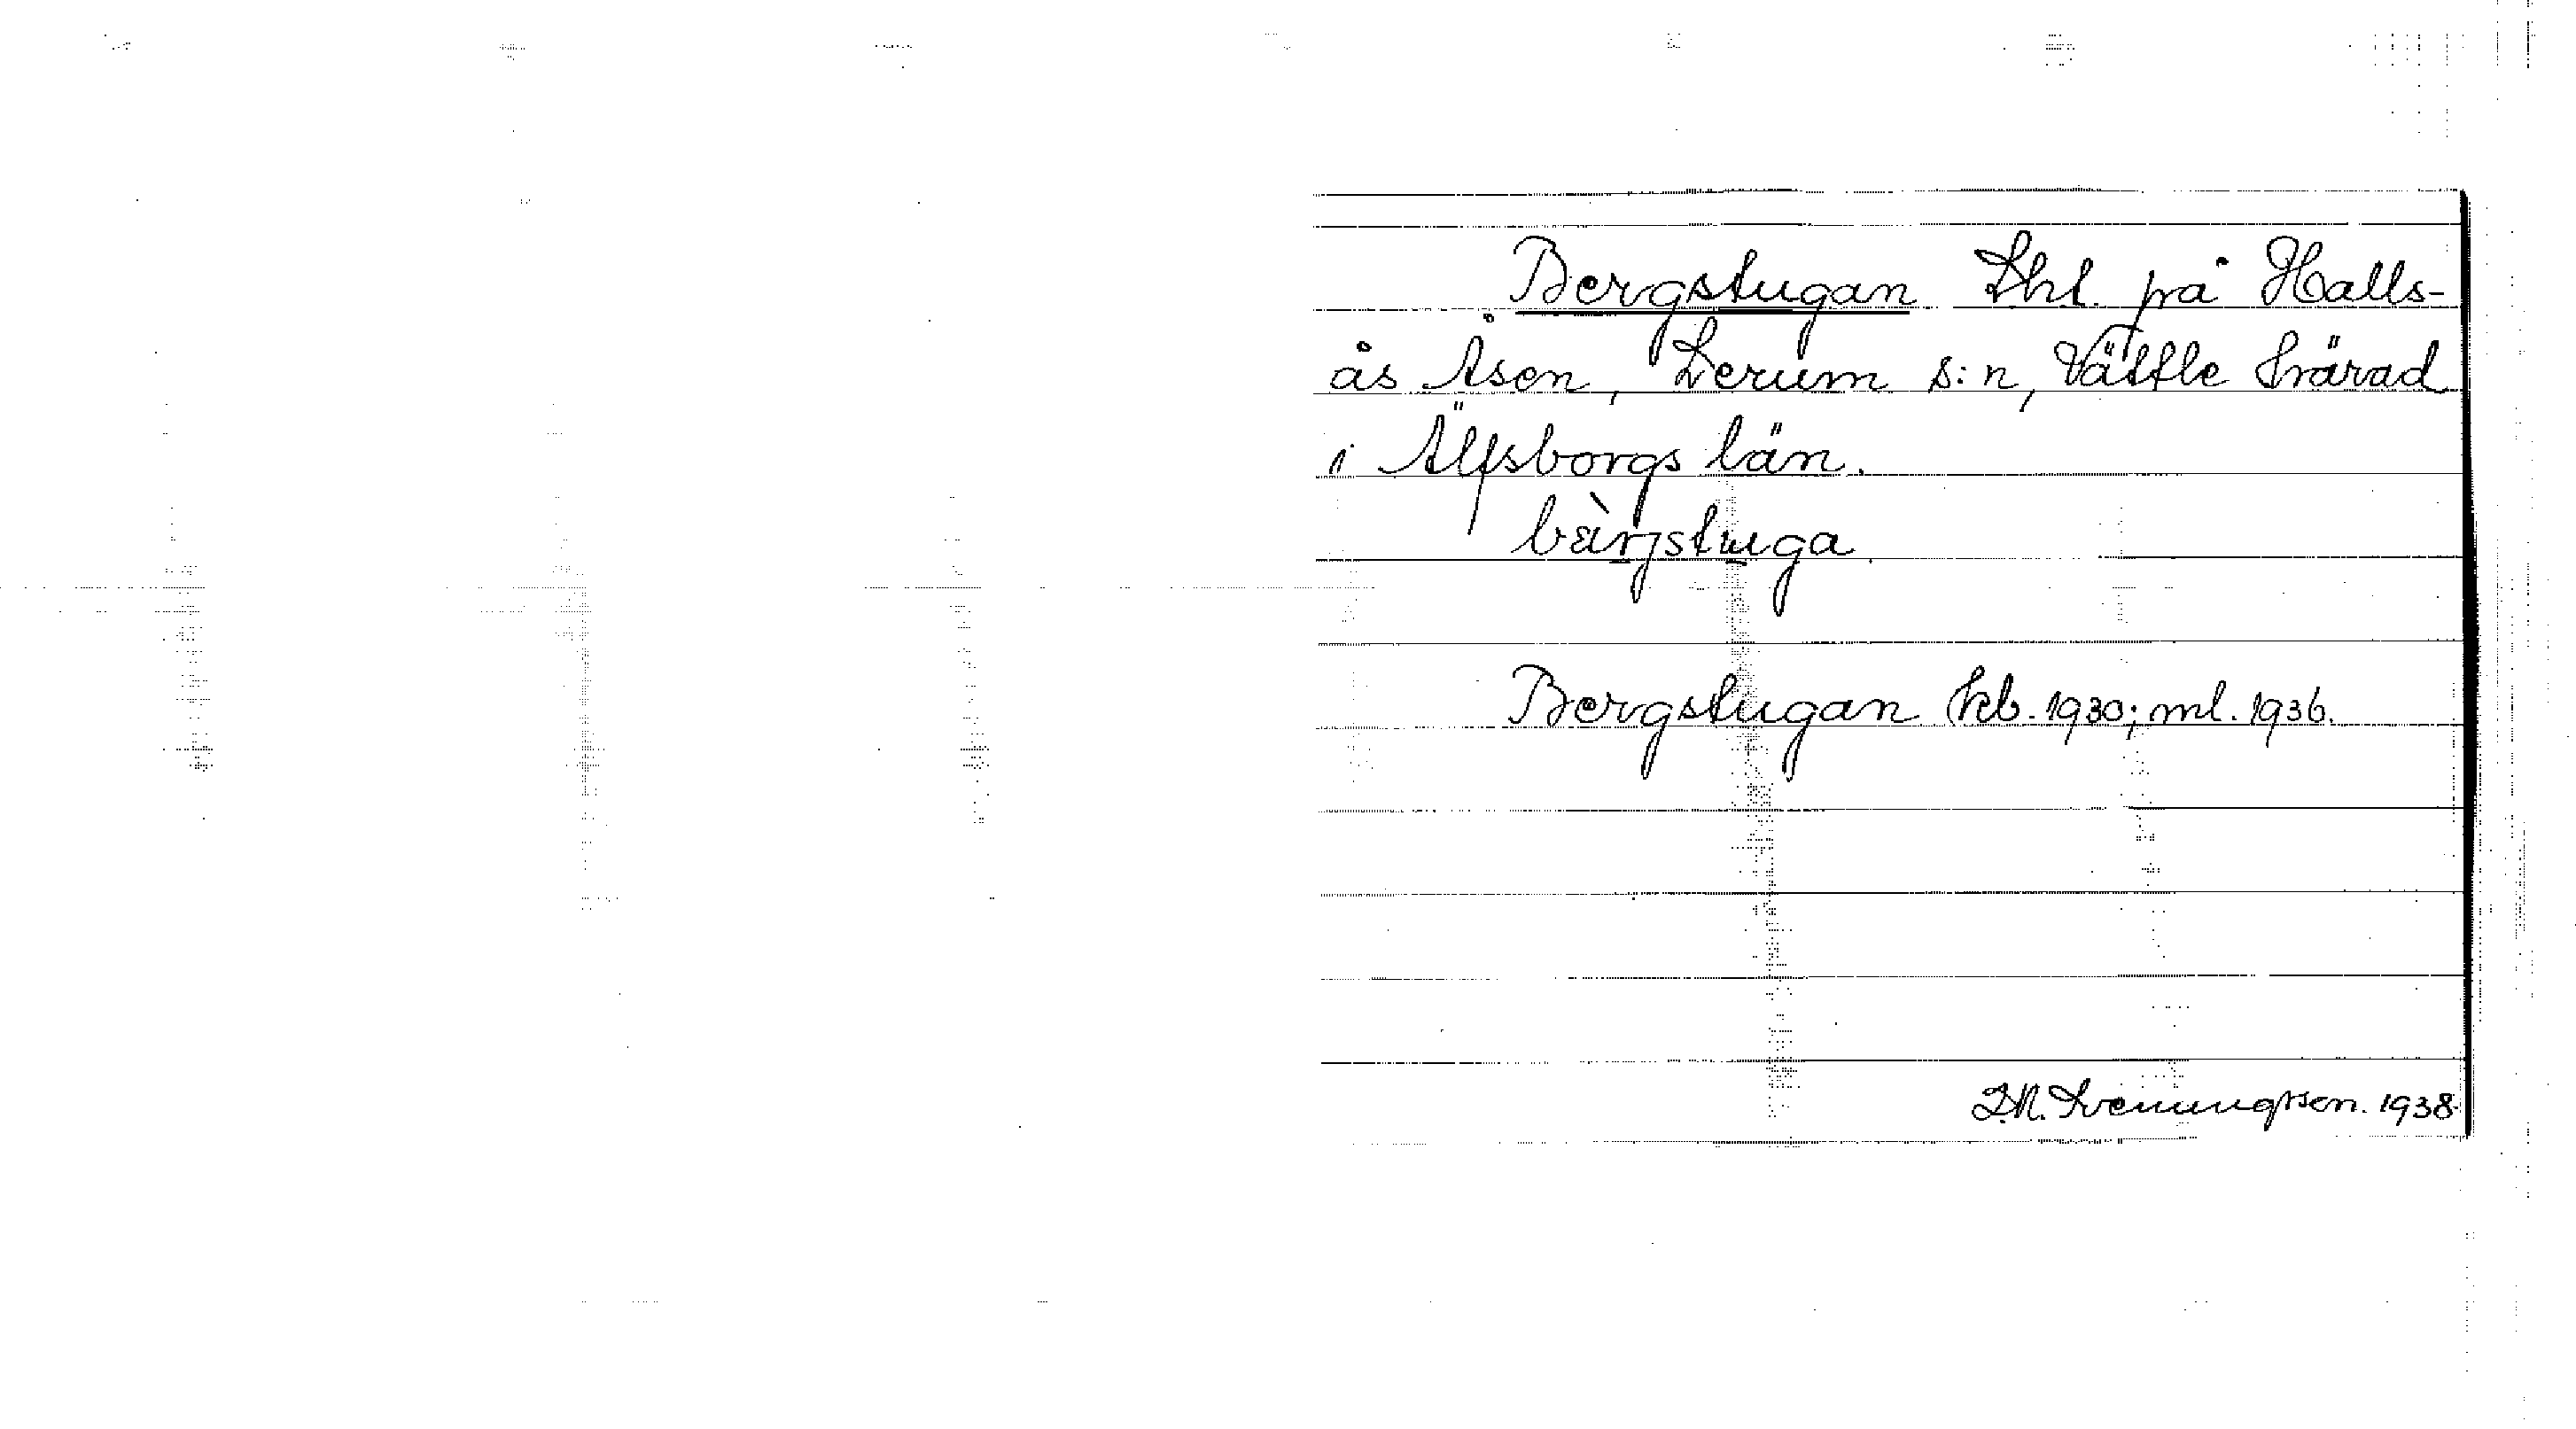 Bergstugan Lht. på Halls-
ås Åsen, Lerum s:n, Vättle härad
i Älfsborgs län.
bàrjstuga.
Bergstugan kb. 1930; ml. 1936.
1938